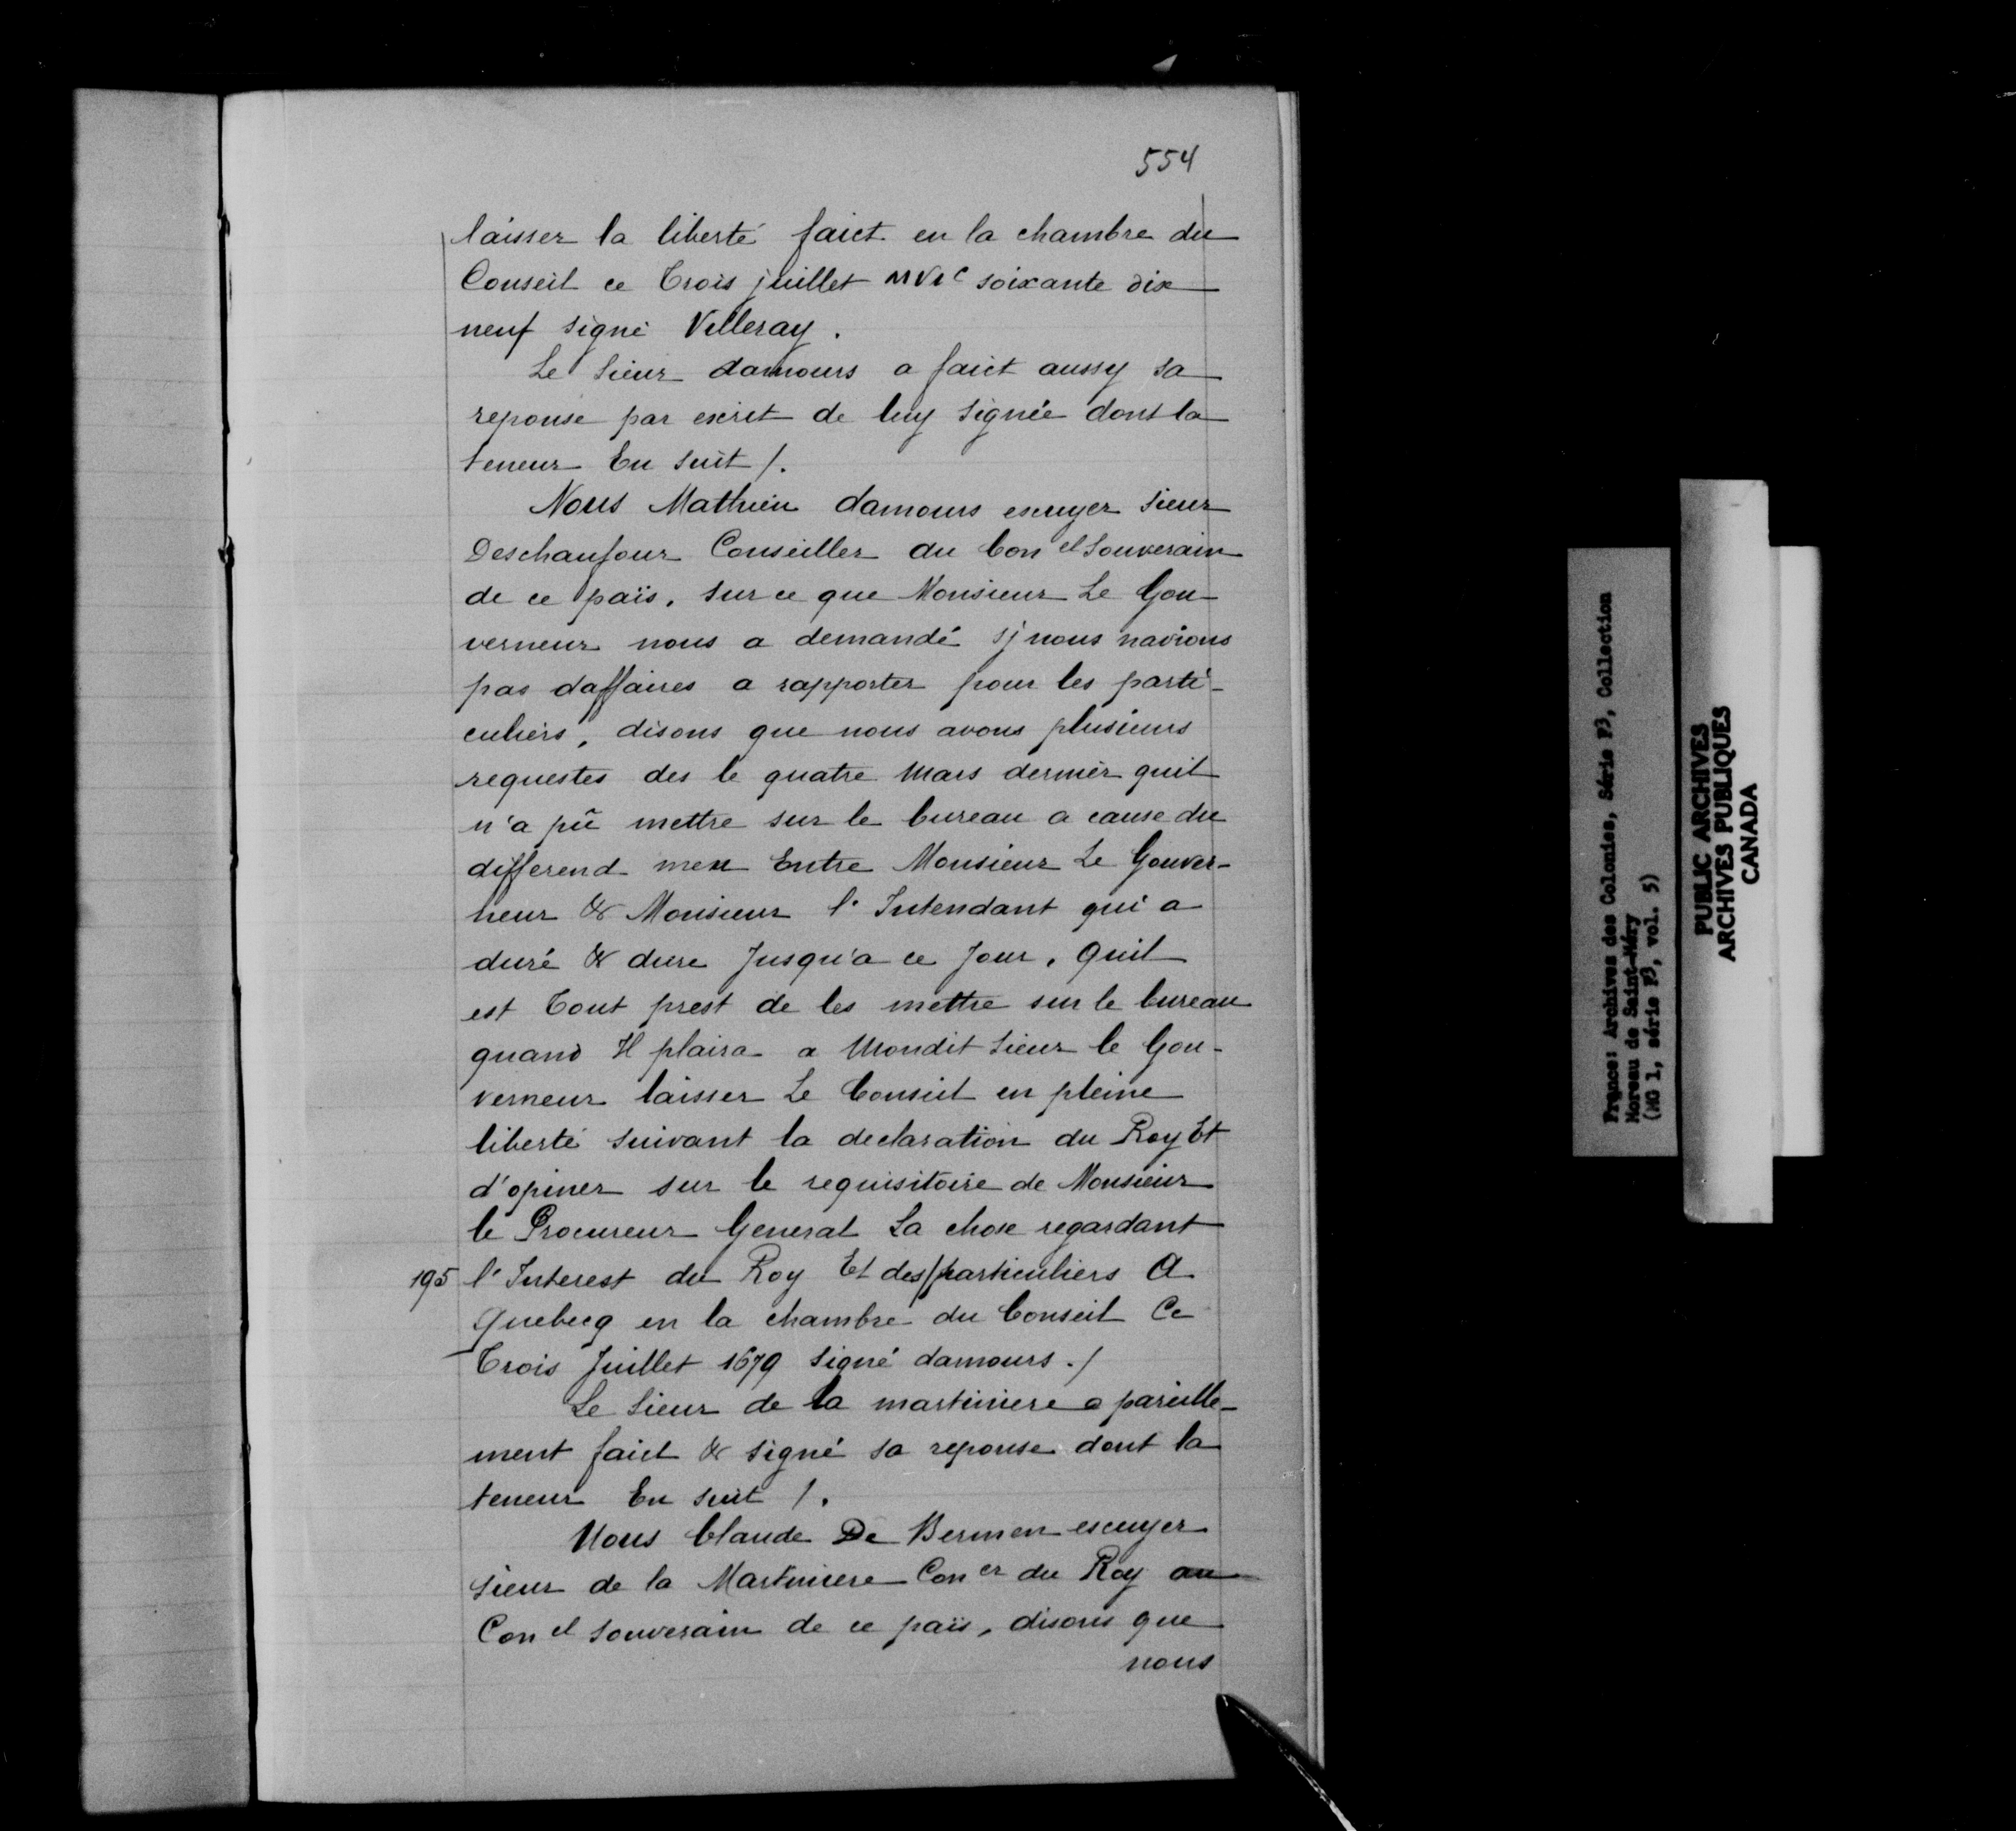 554
laisser la liberté faict en la chambre du
Conseil ce Trois juillet MVIc soixante dix
neuf signé Villeray.
Le Sieur damours a faict aussy sa
reponse par escrit de luy signée dont la
teneur En suit /.
Nous Mathieu damours escuyer sieur
Deschaufour Conseiller du Con el Souverain
de ce païs, sur ce que Monsieur Le Gou
verneur nous a demandé sj nous navions
pas daffaires a rapporter pour les parti-
culiers, disons que nous avons plusieurs
requestes des le quatre Mars dernier quil
n'a pû mettre sur le bureau a cause du
differend meu Entre Monsieur Le Gouver-
neur & Monsieur l'Intendant qui a
duré & dure Jusqu'a ce Jour, quil
est Tout prest de les mettre sur le bureau
quand Il plaira a Mondit Sieur le Gou-
verneur laisser Le Conseil en pleine
liberté suivant la declaration du Roy Et
d'opiner sur le requisitoire de Monsieur
le Procureur General La chose regardant
195 l'Interest du Roy Et des/particuliers A
Quebecq en la chambre du Conseil Ce
Trois Juillet 1679 signé damours ./
Le Sieur de la martiniere a pareille-
ment faict & signé sa reponse dont la
teneur En suit /.
Nous Claude De Bermen escuyer
Sieur de la Martiniere Con er du Roy au
Con el souverain de ce païs, disons que
nous
France: Archives des Colonies, Série F3, Collection
Moreau de Saint-Méry
(MG 1, série F3, vol. 5)
PUBLIC ARCHIVES
ARCHIVES PUBLIQUES
CANADA